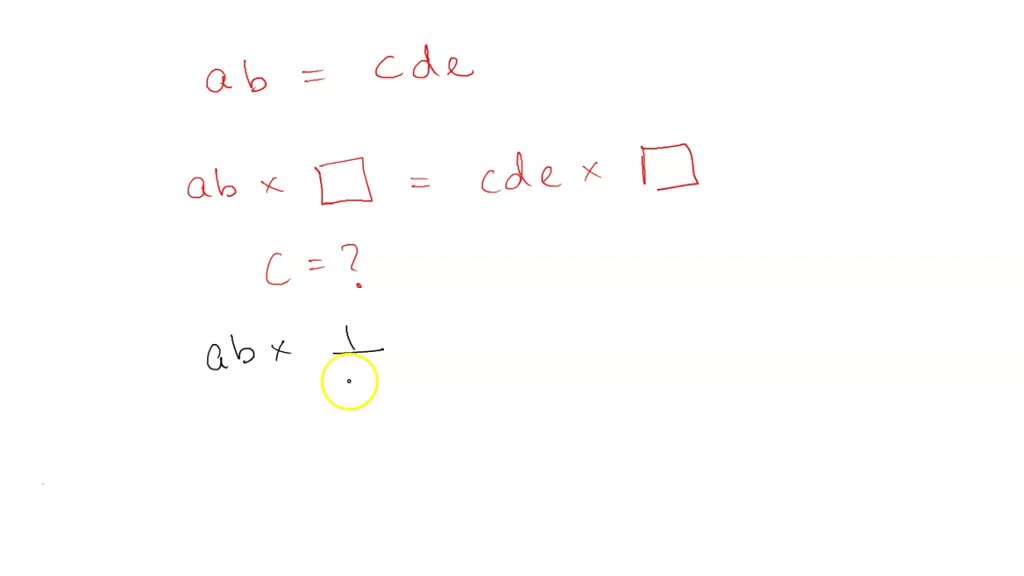 ab = cde
ab × □ = cde × □
c = ?
ab × 1/